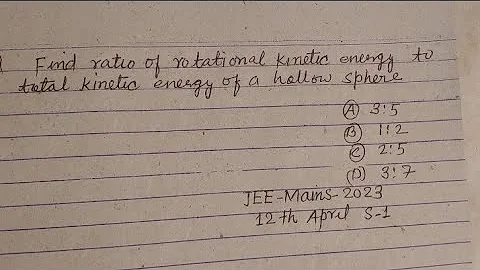 Find ratio of rotational kinetic energy to
total kinetic energy of a hollow sphere
(A) 3:5
(B) 1:2
(C) 2:5
(D) 3:7
JEE-Mains-2023
12th April S-1